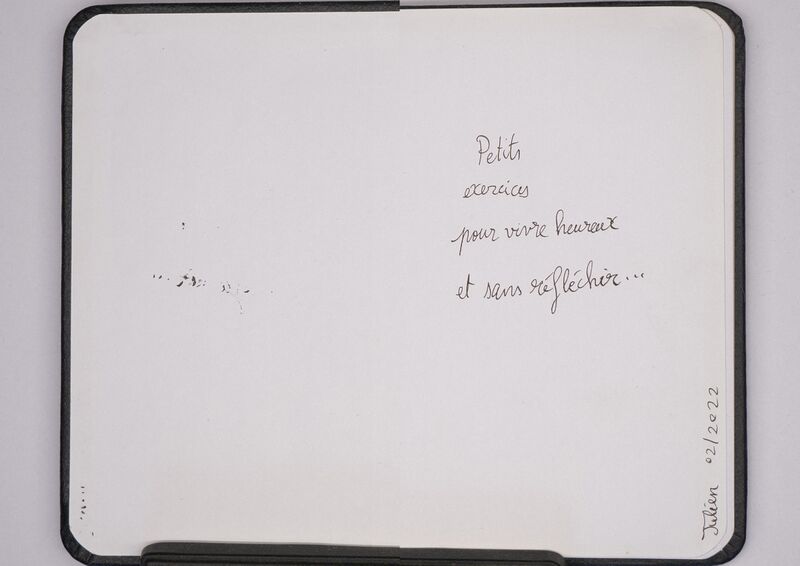 Petits
exercices
pour vivre heureux
et sans réfléchir...
Julien 02/2022